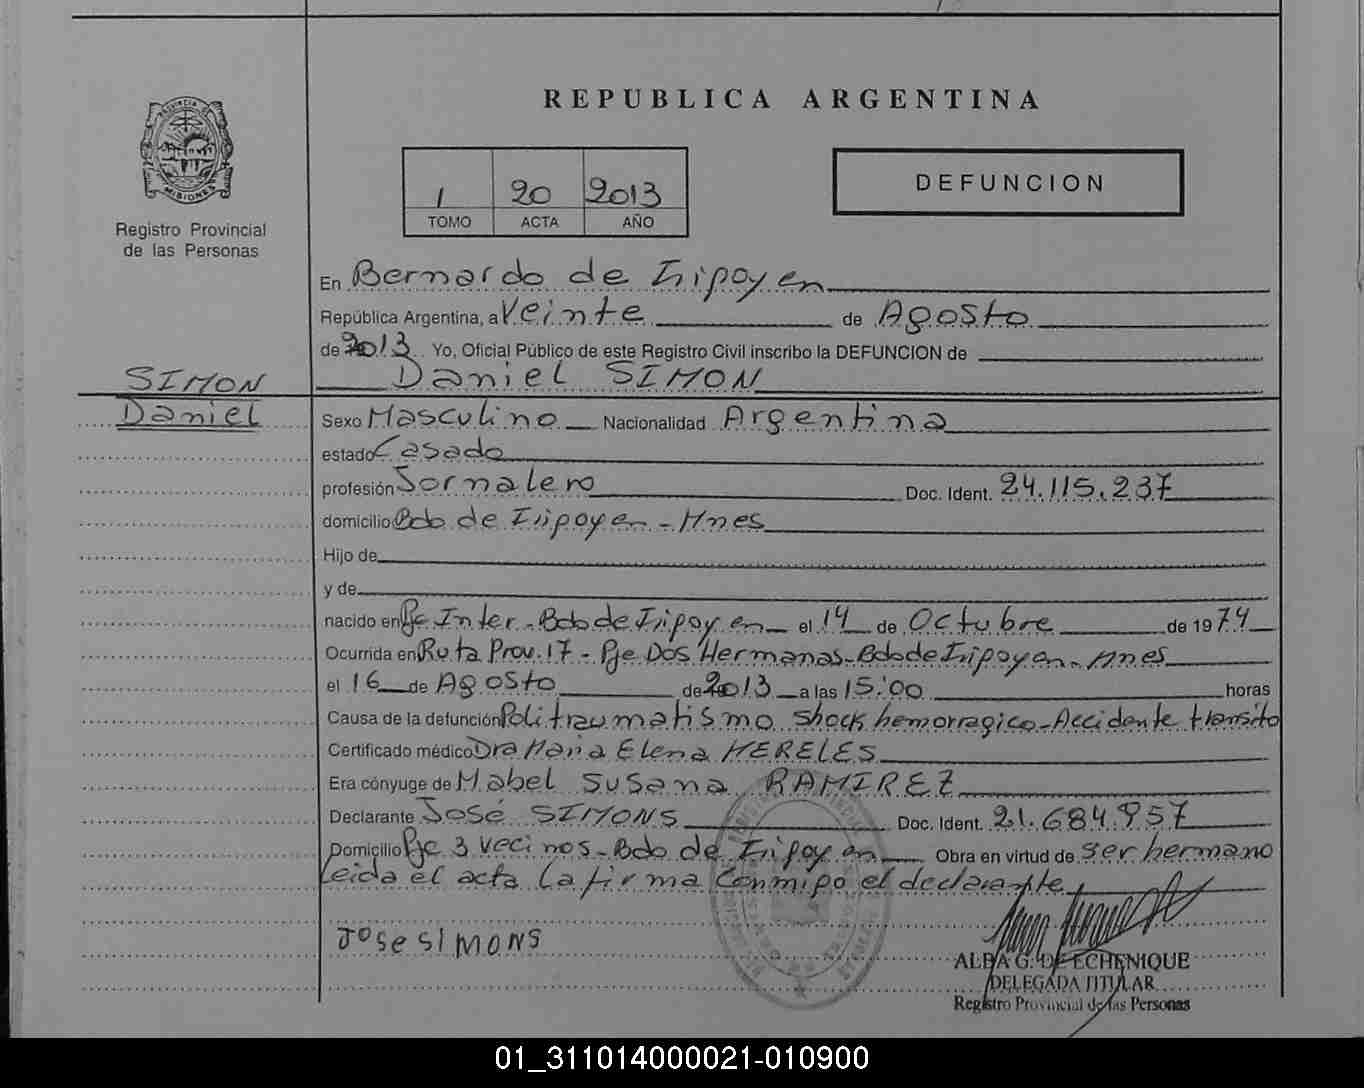 REPUBLICA ARGENTINA
PROVINCIA DE MISIONES
Registro Provincial
de las Personas
1 20 2013
TOMO ACTA AÑO
DEFUNCION
En Bernardo de Irigoyen
República Argentina, a Veinte de Agosto
de 2013 Yo, Oficial Público de este Registro Civil inscribo la DEFUNCION de
SIMON
Daniel
Daniel SIMON
Sexo Masculino Nacionalidad Argentina
estado Casado
profesión Jornalero Doc. Ident. 24.115.237
domicilio Bdo de Irigoyen - Mnes
Hijo de
y de
nacido en Pje Inter - Bdo de Irigoyen el 14 de Octubre de 1974
Ocurrida en Ruta Prov. 17 - Pje Dos Hermanas - Bdo de Irigoyen - Mnes
el 16 de Agosto de 2013 a las 15:00 horas
Causa de la defunción Politraumatismo shock hemorragico - Accidente transito
Certificado médico Dra Maria Elena MERELES
Era cónyuge de Mabel Susana RAMIREZ
Declarante José SIMONS Doc. Ident. 21.684.957
Domicilio Pje 3 vecinos - Bdo de Irigoyen Obra en virtud de ser hermano
leida el acta la firma conmigo el declarante
Jose SIMONS
ALBA G. DE ECHENIQUE
DELEGADA TITULAR
Registro Provincial de las Personas
01_311014000021-010900